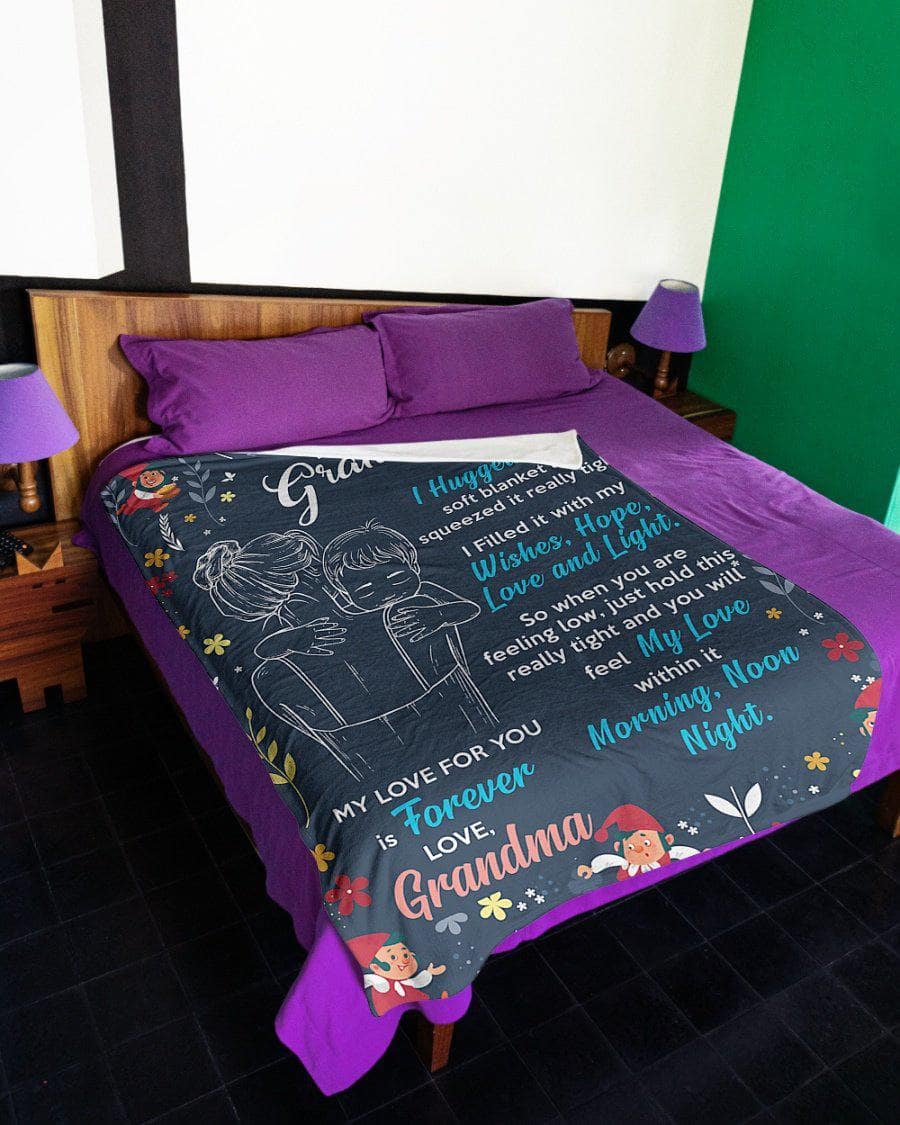 I Hugged
soft blanket
squeezed it really
I Filled it with my
Wishes, Hope,
Love and Light.
So when you are
feeling low, just hold this
really tight and you will
feel My Love
within it
Morning, Noon
Night.
MY LOVE FOR YOU
is Forever
LOVE,
Grandma